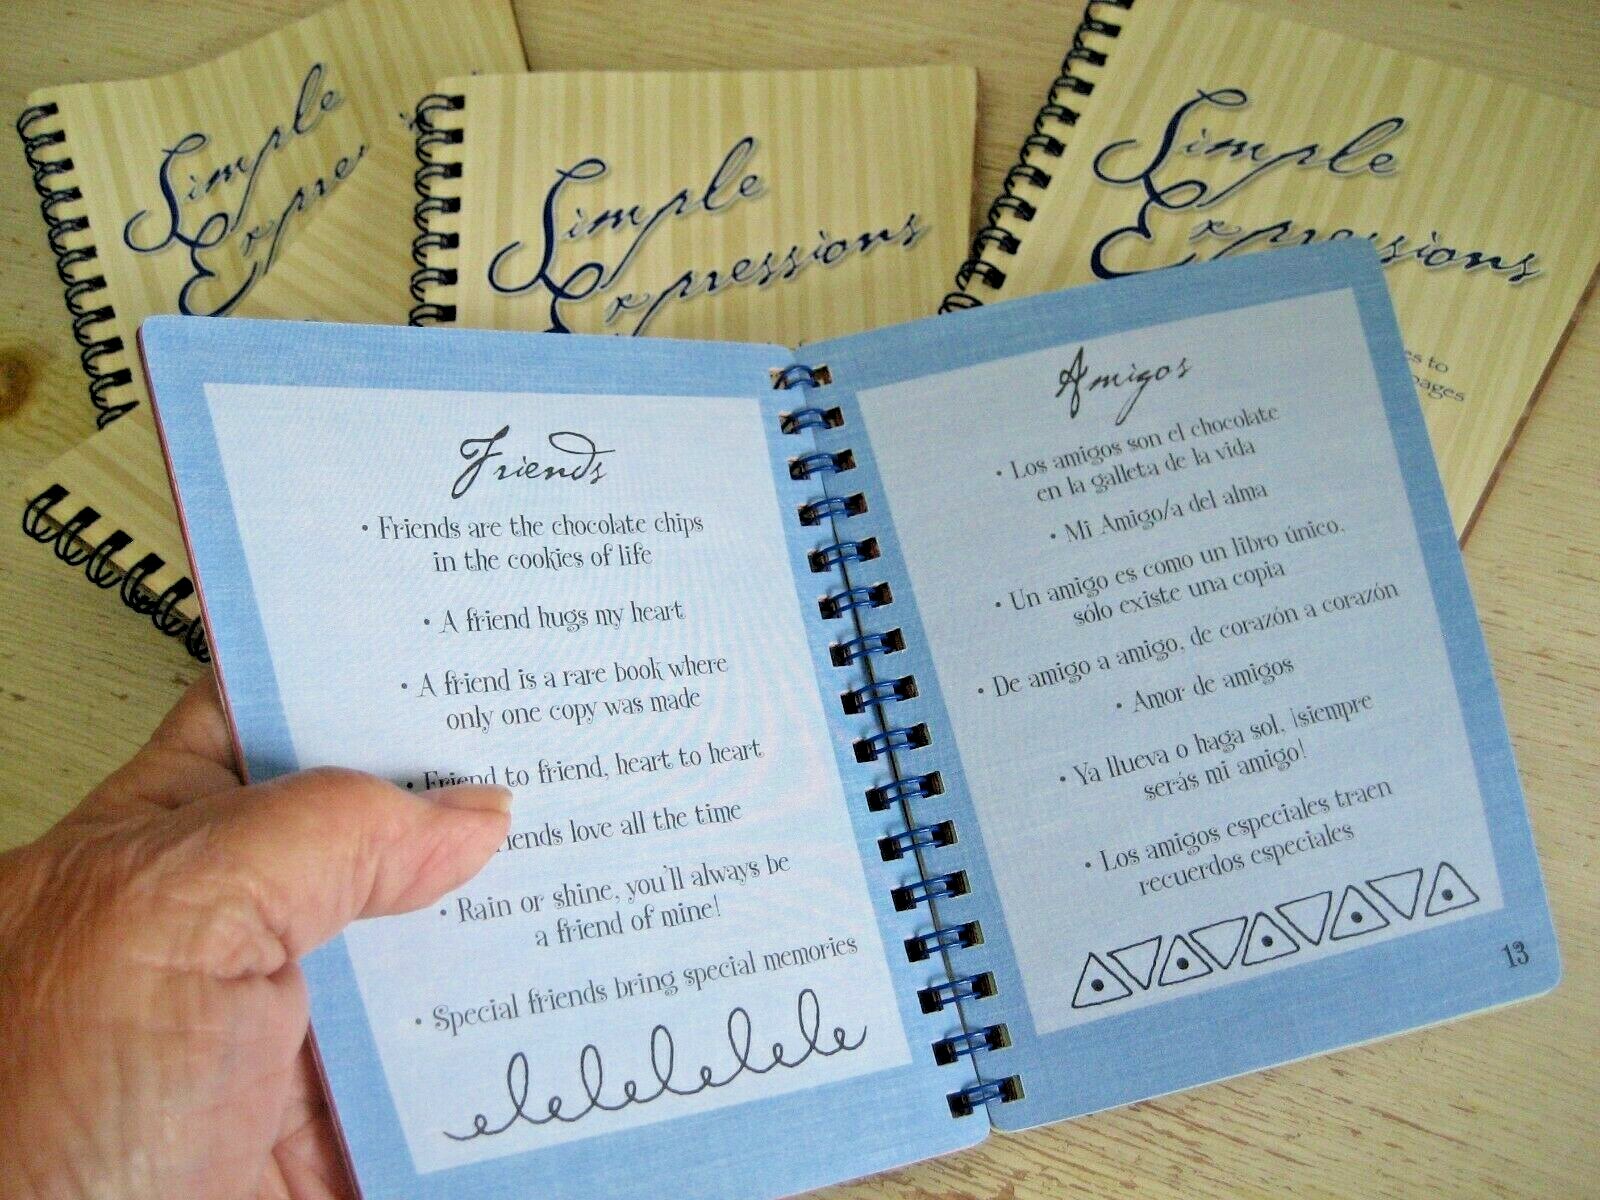 Simple
Expre
Simple
Expressions
Simple
Expressions
es to
pages
Friends
• Friends are the chocolate chips
in the cookies of life
• A friend hugs my heart
• A friend is a rare book where
only one copy was made
• Friend to friend, heart to heart
iends love all the time
• Rain or shine, you'll always be
a friend of mine!
• Special friends bring special memories
Amigos
• Los amigos son el chocolate
en la galleta de la vida
• Mi Amigo/a del alma
• Un amigo es como un libro único,
sólo existe una copia
• De amigo a amigo, de corazón a corazón
• Amor de amigos
• Ya llueva o haga sol, ¡siempre
serás mi amigo!
• Los amigos especiales traen
recuerdos especiales
13